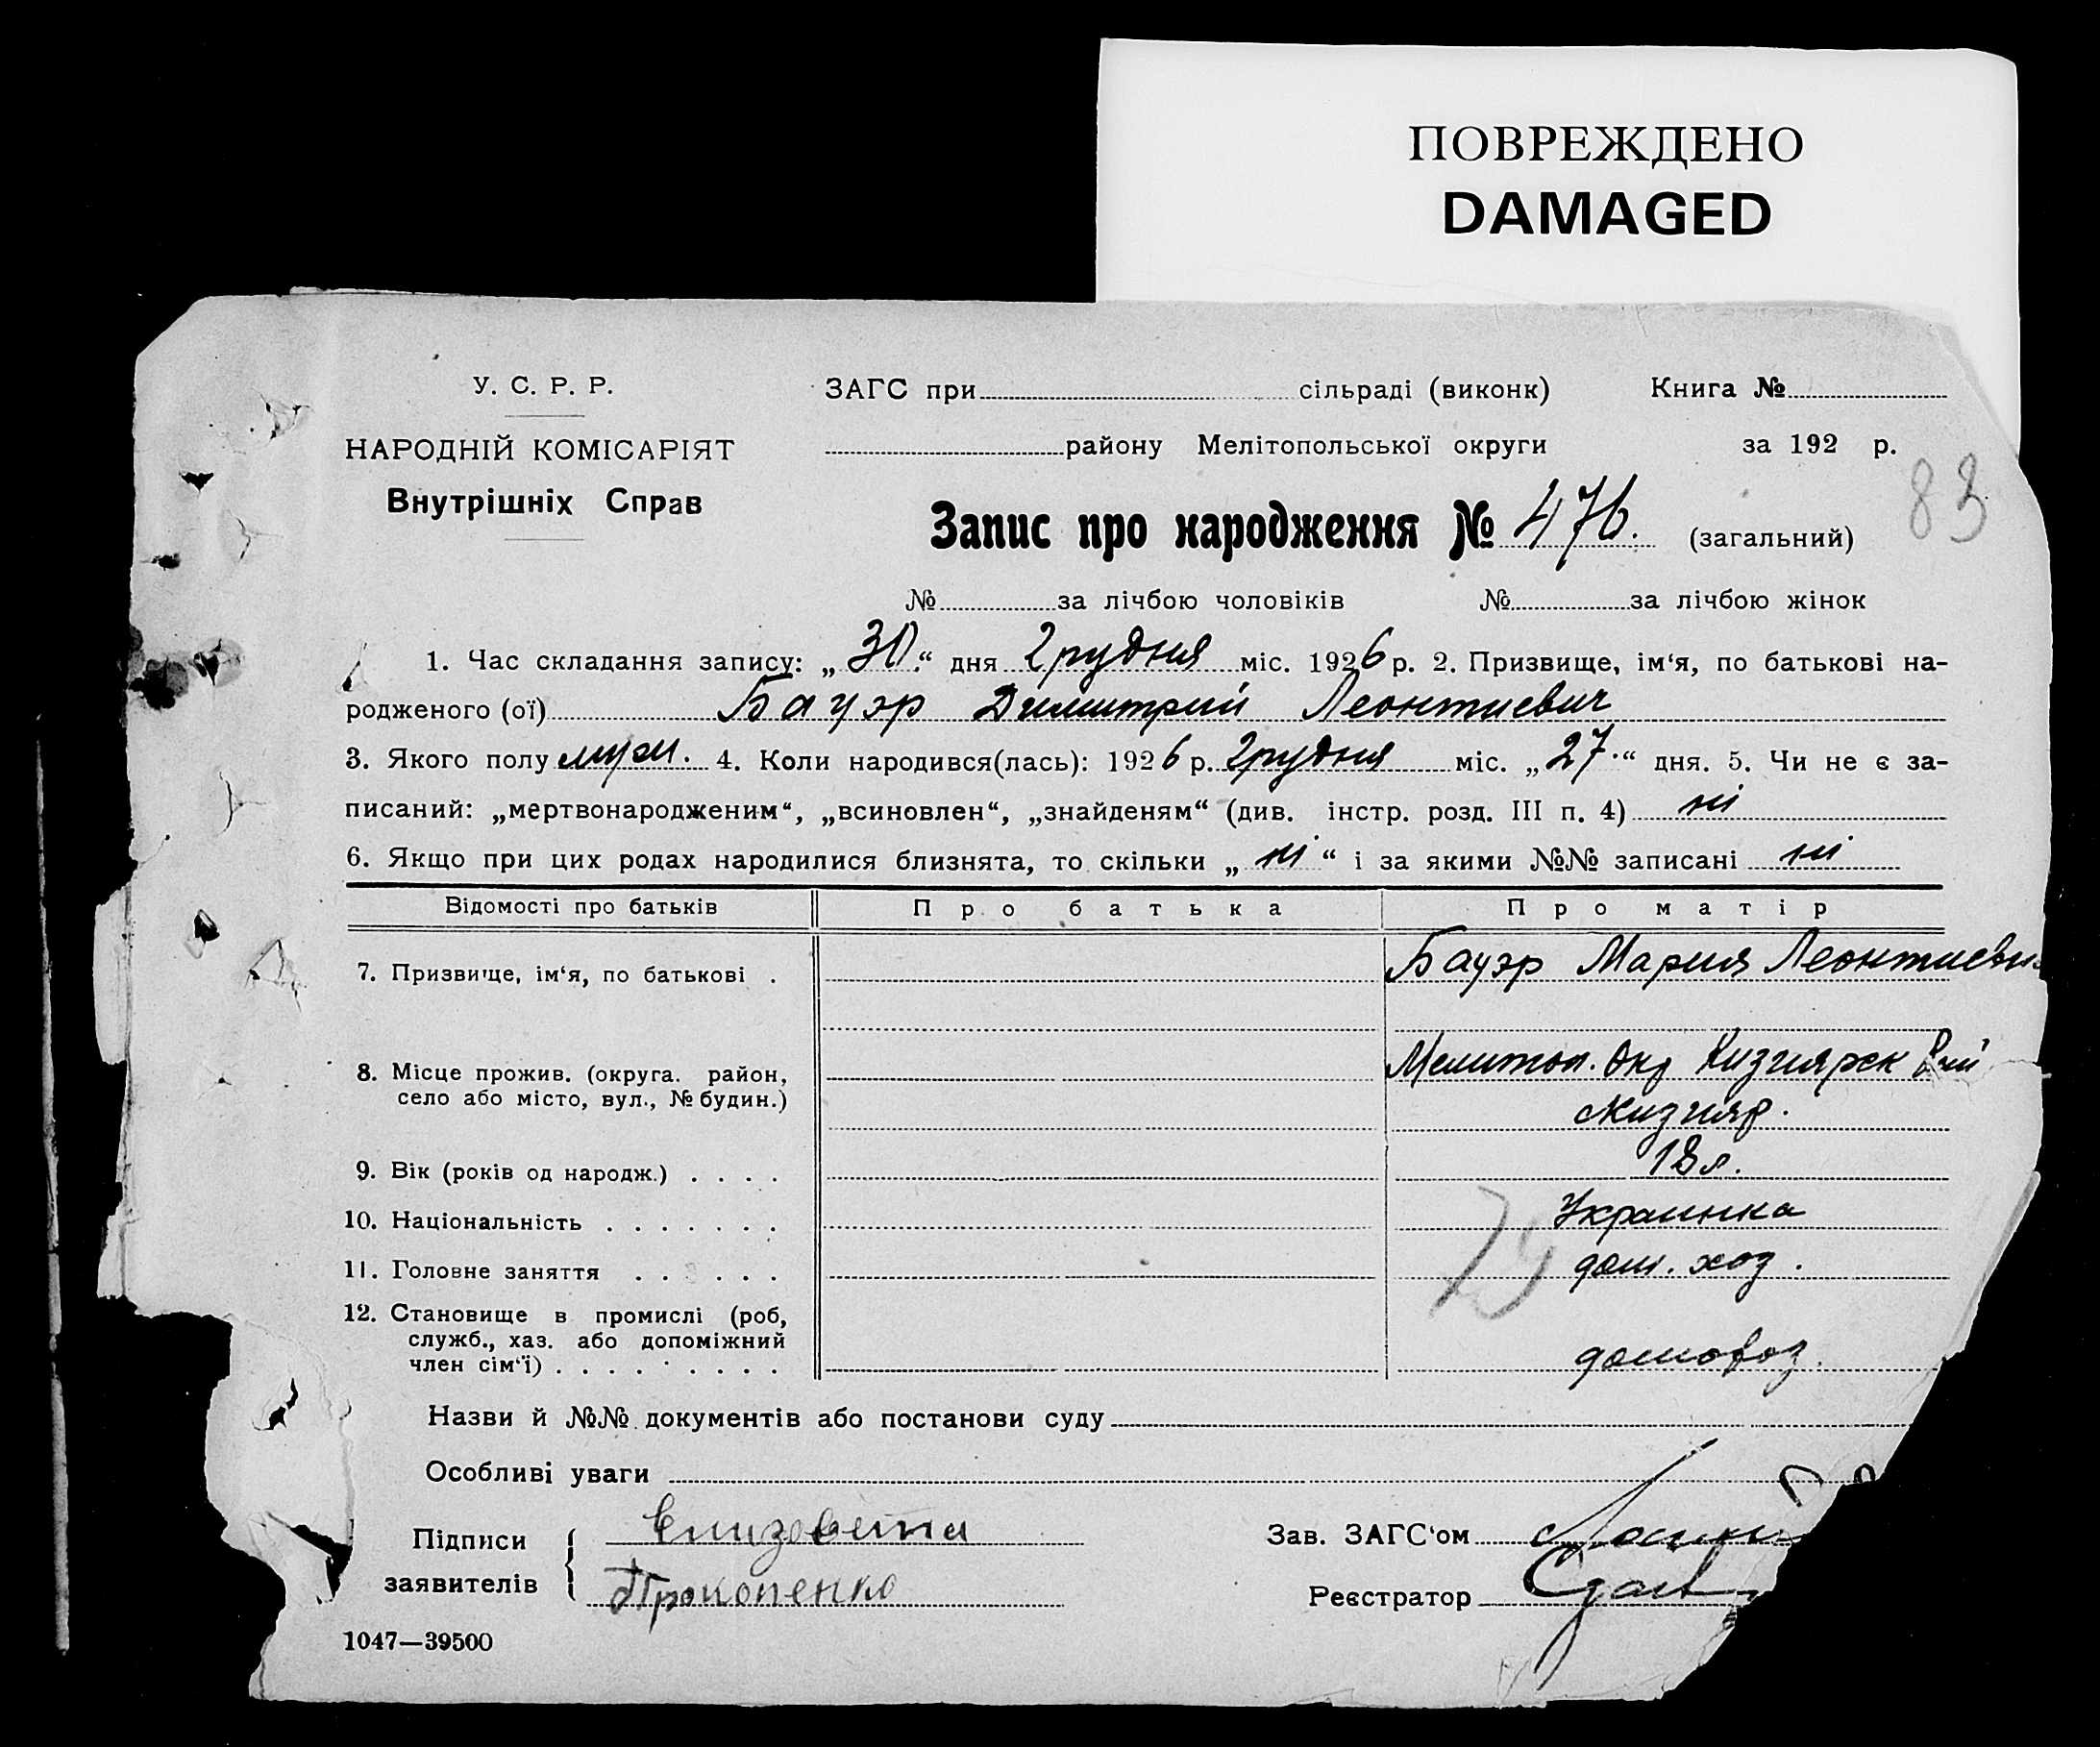 ПОВРЕЖДЕНО
DAMAGED
У. С. Р. Р.
НАРОДНІЙ КОМІСАРІЯТ
Внутрішніх Справ
ЗАГС при сільраді (виконк) Книга №
району Мелітопольської округи за 192 р.
83
Запис про народження № 476. (загальний)
№ за лічбою чоловіків № за лічбою жінок
1. Час складання запису: „30.“ дня Грудня міс. 1926 р. 2. Призвище, ім‘я, по батькові на-
родженого (ої) Бауэр Димитрий Леонтиевич
3. Якого полу муж. 4. Коли народився(лась): 1926 р. Грудня міс. „27.“ дня. 5. Чи не є за-
писаний: „мертвонародженим“, „всиновлен“, „знайденям“ (див. інстр. розд. III п. 4) ні
6. Якщо при цих родах народилися близнята, то скільки „ні“ і за якими №№ записані ні
Відомості про батьків Про батька Про матір
7. Призвище, ім‘я, по батькові . Бауэр Мария Леонтиевн
8. Місце прожив. (округа. район, село або місто, вул., № будин.) Мелитоп. Окр Кизиярск Рай
Кизияр.
9. Вік (років од народж.) . . . . 18 л.
10. Національність . . . . . . . Украинка
11. Головне заняття . . . . . . дом. хоз.
12. Становище в промислі (роб,
служб., хаз. або допоміжний
член сім‘ї) . . . . . . . . .
Назви й №№ документів або постанови суду
Особливі уваги
Підписи
заявителів
Елизовета
Прокопенко
Зав. ЗАГС‘ом
Реєстратор
1047—39500